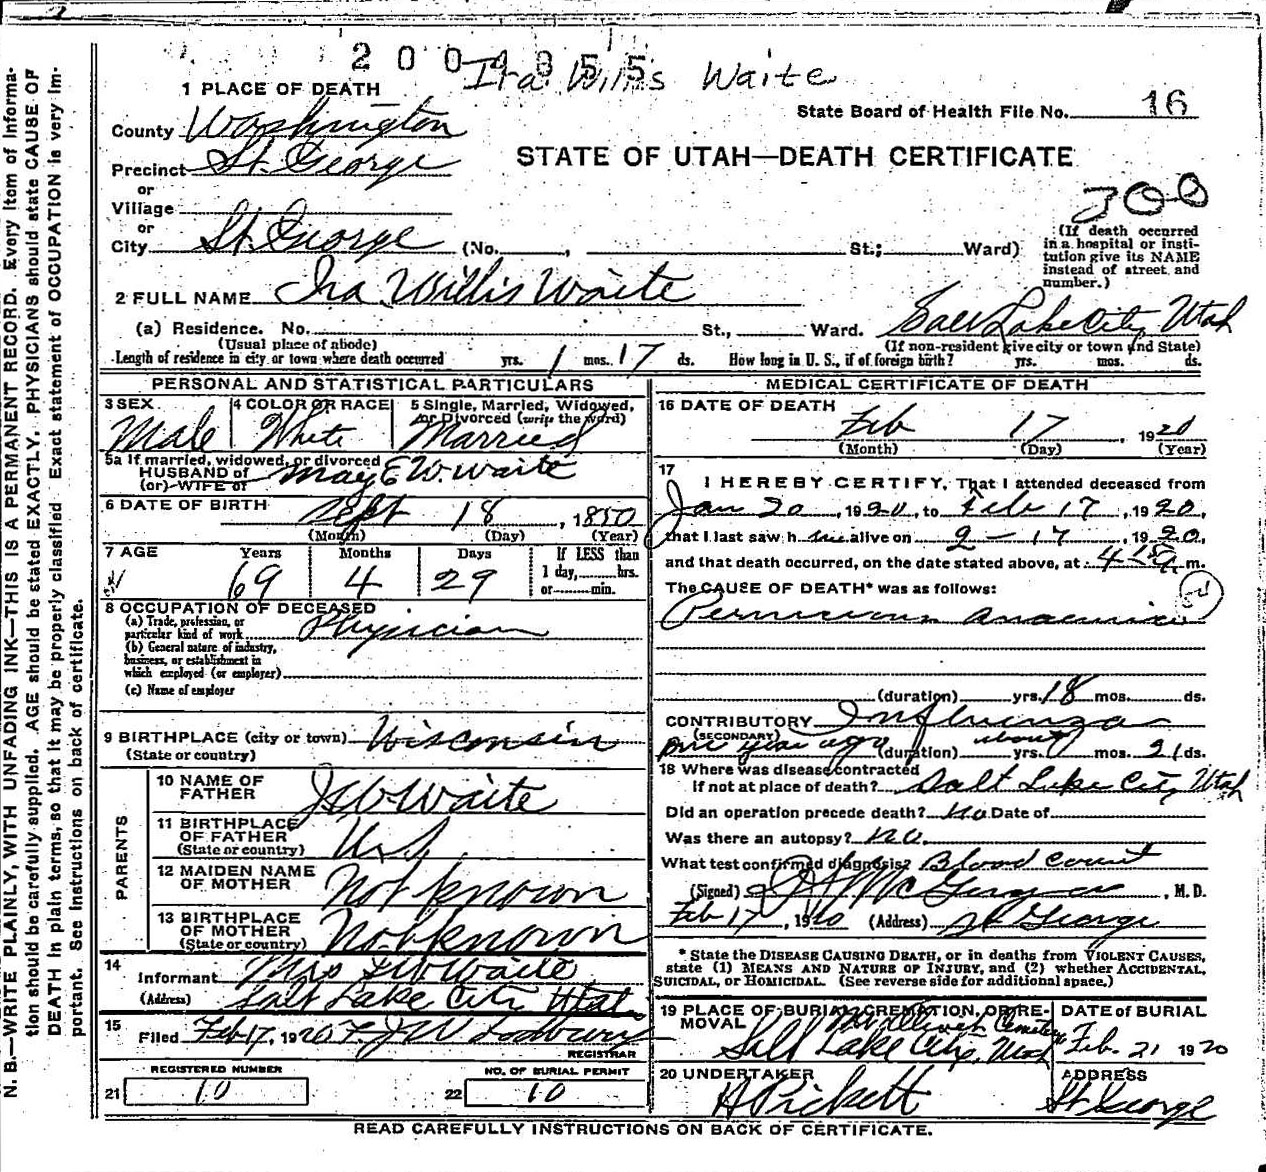 2004355
Ira Willis Waite
1 PLACE OF DEATH
State Board of Health File No. 16
County Washington
STATE OF UTAH—DEATH CERTIFICATE
Precinct St. George
or
Village
or
City St. George (No. , St.; Ward)
300
(If death occurred in a hospital or institution give its NAME instead of street and number.)
2 FULL NAME Ira Willis Waite
(a) Residence. No. St., Ward. Salt Lake City, Utah
(Usual place of abode) (If non-resident give city or town and State)
Length of residence in city or town where death occurred yrs. 1 mos. 17 ds. How long in U. S., if of foreign birth? yrs. mos. ds.
PERSONAL AND STATISTICAL PARTICULARS
3 SEX Male
4 COLOR OR RACE White
5 Single, Married, Widowed, or Divorced (write the word) Married
5a If married, widowed, or divorced
HUSBAND of May E W. Waite
(or) WIFE of
6 DATE OF BIRTH Sept 18, 1850
(Month) (Day) (Year)
7 AGE Years 69 Months 4 Days 29
If LESS than 1 day, hrs. or min.
8 OCCUPATION OF DECEASED
(a) Trade, profession, or particular kind of work Physician
(b) General nature of industry, business, or establishment in which employed (or employer)
(c) Name of employer
9 BIRTHPLACE (city or town) Wisconsin
(State or country)
PARENTS
10 NAME OF FATHER Waite
11 BIRTHPLACE OF FATHER (State or country) U.S.
12 MAIDEN NAME OF MOTHER Not known
13 BIRTHPLACE OF MOTHER (State or country) Not known
14 Informant Mrs Waite
(Address) Salt Lake City Utah
15 Filed Feb 17, 1920 F. J W
REGISTRAR
REGISTERED NUMBER
21 10
NO. OF BURIAL PERMIT
22 10
MEDICAL CERTIFICATE OF DEATH
16 DATE OF DEATH
Feb 17, 1920
(Month) (Day) (Year)
17
I HEREBY CERTIFY, That I attended deceased from
Jan 20, 1920, to Feb 17, 1920,
that I last saw h im alive on 2-17, 1920,
and that death occurred, on the date stated above, at 4 15 a. m.
The CAUSE OF DEATH* was as follows:
Pernicious anaemia
(duration) yrs. 18 mos. ds.
CONTRIBUTORY Influenza
(SECONDARY)
one year ago (duration) about yrs. mos. 21 ds.
18 Where was disease contracted
if not at place of death? Salt Lake City, Utah
Did an operation precede death? no Date of
Was there an autopsy? no.
What test confirmed diagnosis? Blood Count
(Signed) , M. D.
Feb 17, 1920 (Address) St George
* State the DISEASE CAUSING DEATH, or in deaths from VIOLENT CAUSES,
state (1) MEANS AND NATURE OF INJURY, and (2) whether ACCIDENTAL,
SUICIDAL, or HOMICIDAL. (See reverse side for additional space.)
19 PLACE OF BURIAL, CREMATION, OR REMOVAL Mt Olivet Cemetery Salt Lake City, Utah
DATE of BURIAL Feb. 21 1920
20 UNDERTAKER Pickett
ADDRESS St George
READ CAREFULLY INSTRUCTIONS ON BACK OF CERTIFICATE.
N. B.—WRITE PLAINLY, WITH UNFADING INK—THIS IS A PERMANENT RECORD. Every item of information should be carefully supplied. AGE should be stated EXACTLY. PHYSICIANS should state CAUSE OF DEATH in plain terms, so that it may be properly classified. Exact statement of OCCUPATION is very important. See instructions on back of certificate.